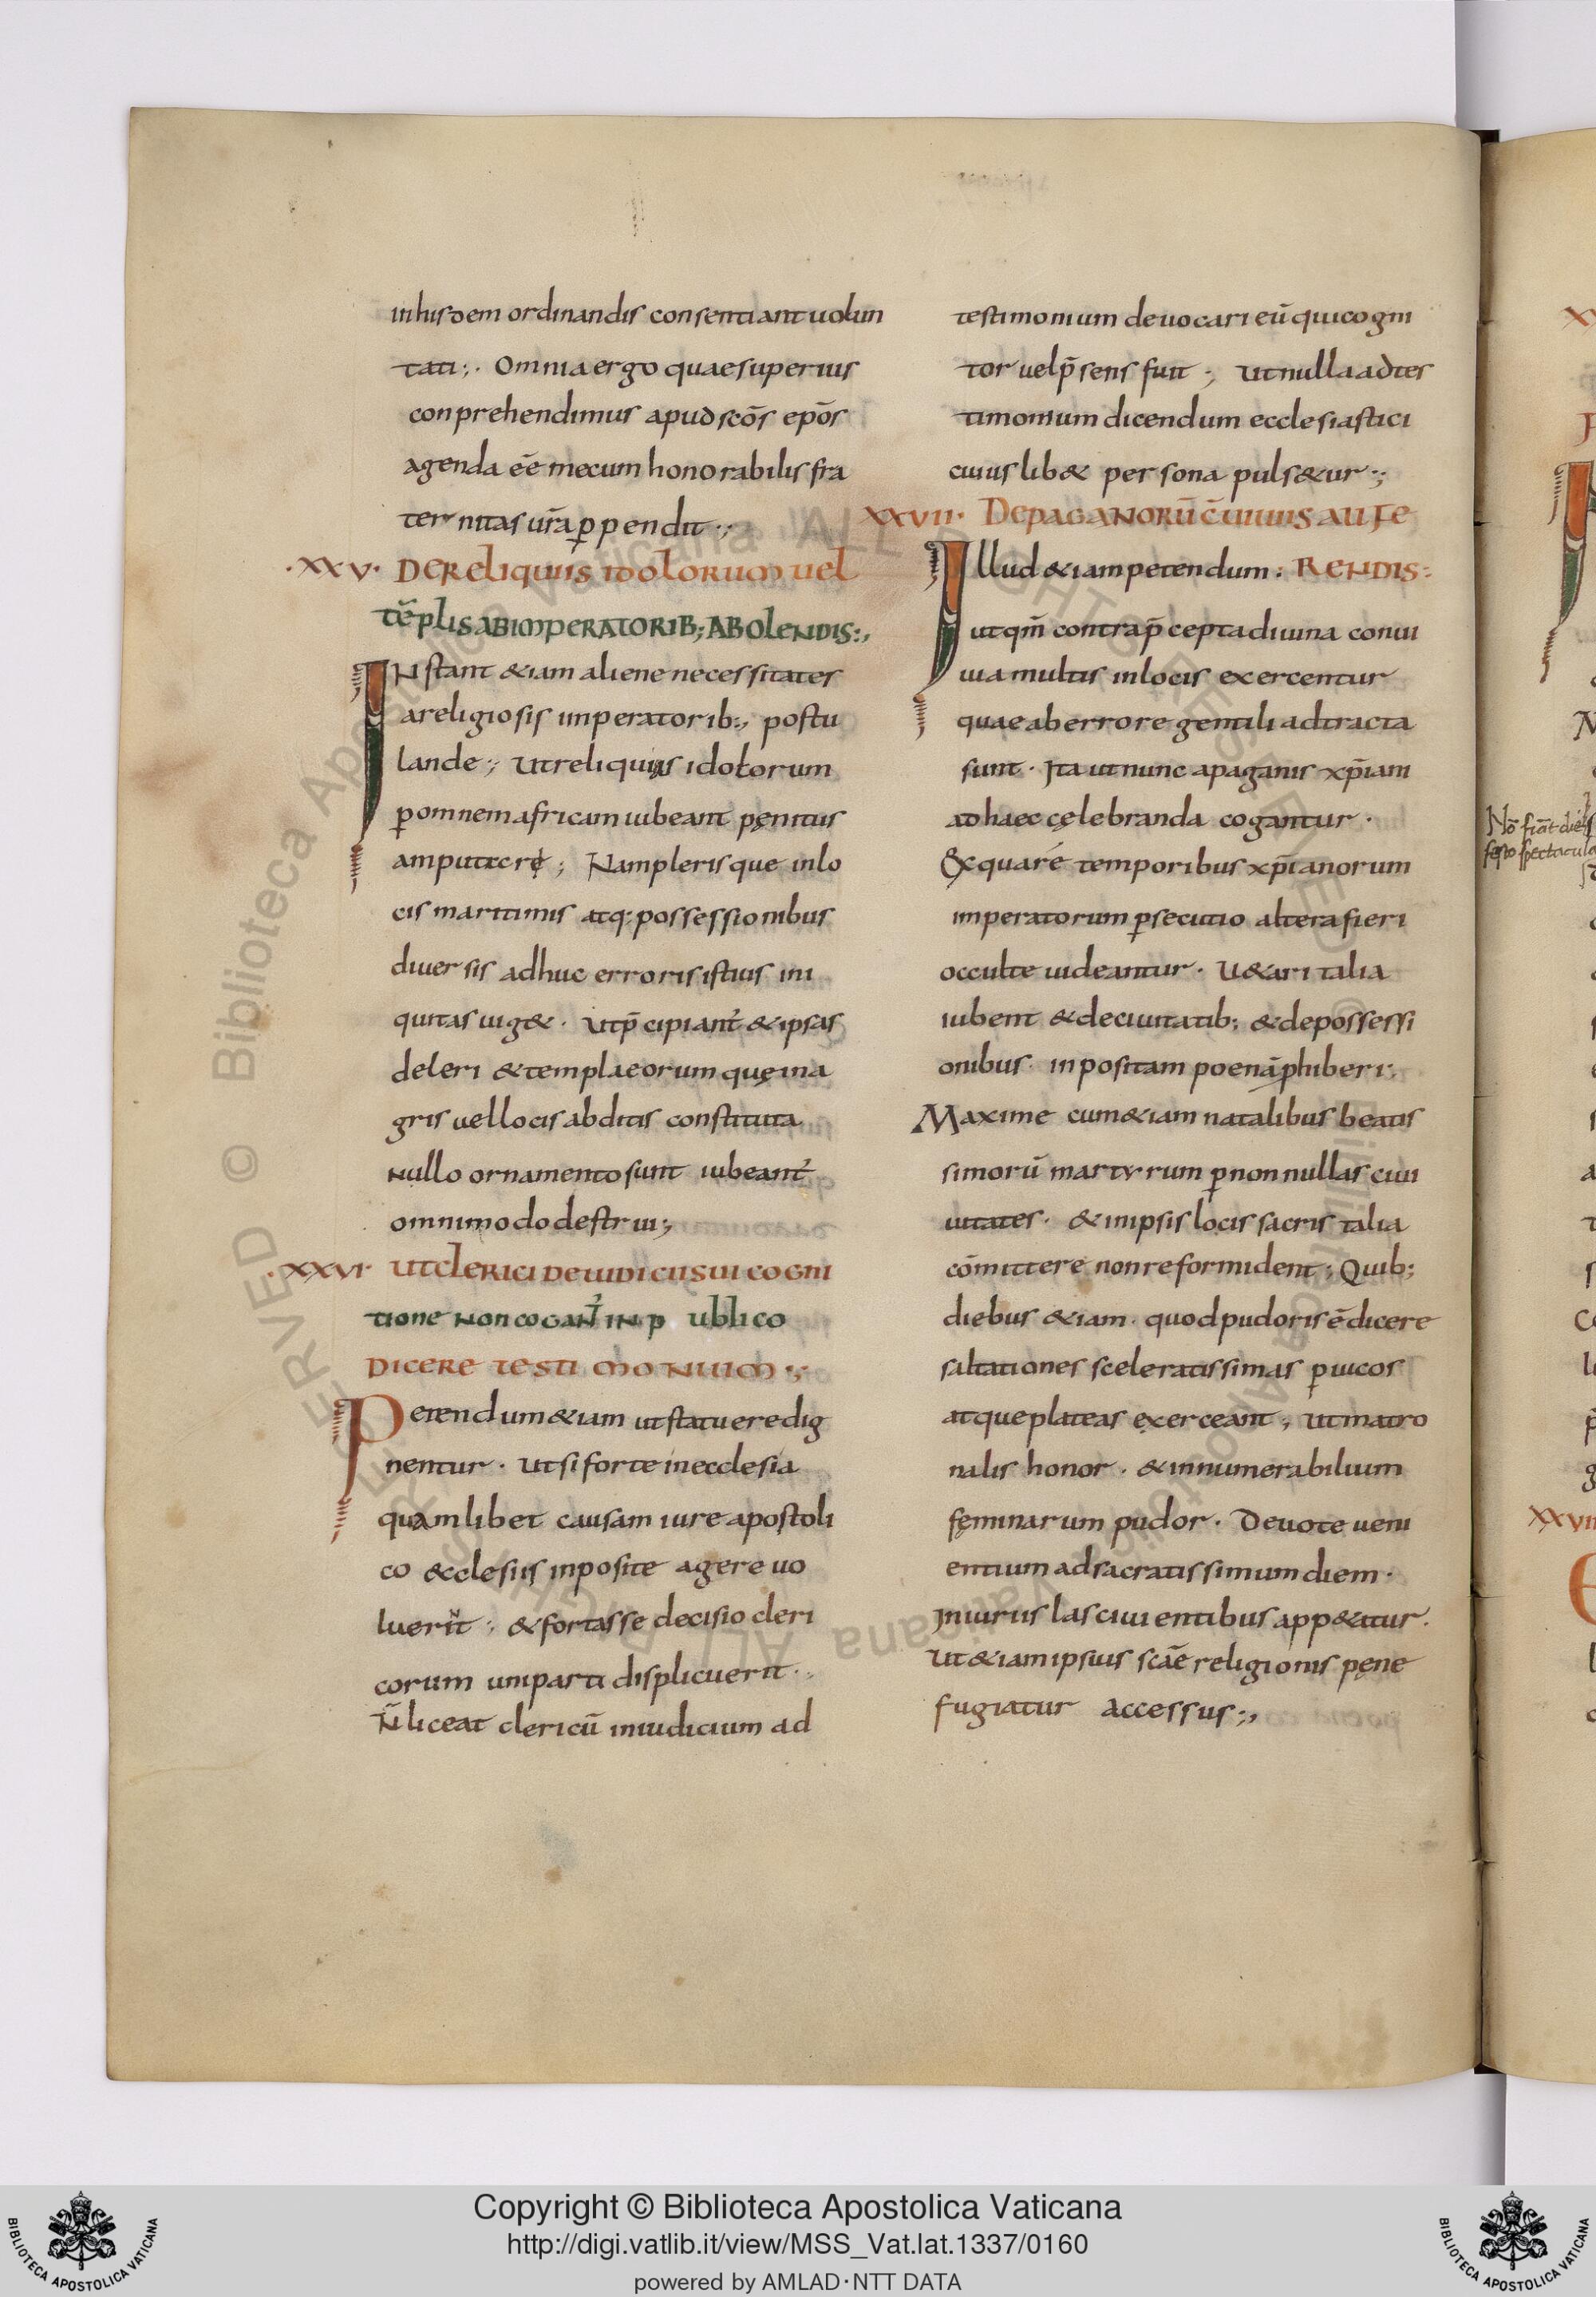 in hisdem ordinandis consentiant uolun
tati;. Omnia ergo quae superius
conprehendimus apud scōs epōs
agenda eē mecum honorabilis fra
ternitas ur̄a ꝑpendit.;
·XXV· DE Reliquiis idolorum uel
tēplis AB imperatorib; Abolendis:,
INstant &iam aliene necessitates
a religiosis imperatorib:, postu
lande; Ut reliquias idolorum
ꝑ omnem africam iubeant pęnitus
amputare; Nam plerisque in lo
cis maritimis atq; possessionibus
diuersis adhuc erroris istius ini
quitas uig&. Ut p̄cipiant̄ & ipsas
deleri & templa eorum quę in a
gris uel locis abditis constituta
nullo ornamento sunt iubeant̄
omnimodo destrui;,
·XXVI· UT clerici de iudicii sui cogni
tione non cogant̄ in publico
Dicere testimonium:,
Petendum &iam ut statuere dig
nentur. Ut si forte in ecclesia
quamlibet causam iure apostoli
co &cclesiis inposite agere uo
luerīt; & fortasse decisio cleri
corum uni parti displicuerit.,
N̄ liceat clericū in iudicium ad
testimonium deuocari eū qui cogni
tor uel p̄sens fuit; Ut nulla ad tes
timonium dicendum ecclesiastici
cuiuslib& persona puls&ur:;
XXVII· De paganorū c̄uiuiis aufe
Illud &iam petendum: RENDIS:
ut qm̄ contra p̄cepta diuina conui
uia multis in locis exercentur
quae ab errore gentili adtracta
sunt. Ita ut nunc a paganis xp̄iani
ad haec cęlebranda cogantur.
Ex qua ré temporibus xp̄ianorum
imperatorum ꝑsecutio altera fieri
occulte uideantur. U&ari talia
iubent & de ciuitatib; & de possessi
onibus inpositam poenā ꝓhiberi;
Maxime cum &iam natalibus beatis
simorū martyrum ꝑ non nullas ciui
uitates. & in ipsis locis sacris talia
cōmittere non reformident; Quib;
diebus &iam. quod pudoris ē dicere
saltationes sceleratissimas ꝑ uicos
atque plateas exerceant; Ut matro
nalis honor. & innumerabilium
fęminarum pudor. Deuote ueni
entium ad sacratissimum diem.
Iniuriis lasciuientibus app&atur.
Ut &iam ipsius scāe religionis pęne
fugiatur accessus:,
Nō fiāt dieb
festo spectacula
XXVIII
Copyright © Biblioteca Apostolica Vaticana
http://digi.vatlib.it/view/MSS_Vat.lat.1337/0160
powered by AMLAD·NTT DATA
BIBLIOTECA APOSTOLICA VATICANA
BIBLIOTECA APOSTOLICA VATICANA